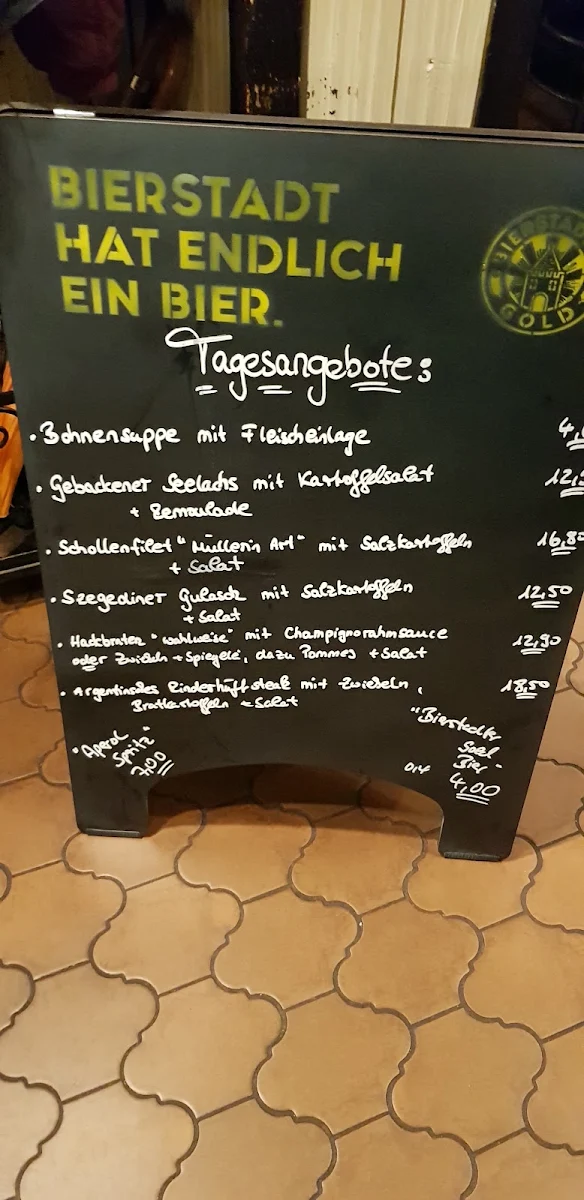 BIERSTADT
HAT ENDLICH
EIN BIER.
BIERSTADT
GOLD
Tagesangebote:
• Bohnensuppe mit Fleischeinlage 4,
• Gebackener Seelachs mit Kartoffelsalat 12,5
+ Remoulade
• Schollenfilet "Müllerin Art" mit Salzkartoffeln 16,8
+ Salat
• Szegediner Gulasch mit Salzkartoffeln 12,50
+ Salat
• Hackbraten "wahlweise" mit Champignonrahmsauce 12,90
oder Zwiebeln + Spiegelei, dazu Pommes + Salat
• Argentinisches Rinderhüftsteak mit Zwiebeln, 18,50
Bratkartoffeln + Salat
"Aperol
Spritz"
7,00
"Bierstadter
Gold
Bier"
0,4 4,00